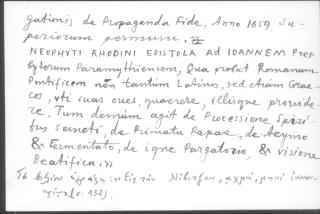 gationis de Propaganda Fide, Anno 1659 Su-
periorum permissu.
NEOPHYTI RHODINI EPISTOLA AD IOANNEM Pres-
byterum Paramythiensem, Qua probat Romanum
Pontificem non tantum Latinos, sed etiam Grae-
cos, uti suas oves, quaerere, illisque provide-
re. Tum demum agit de Processione Spiri-
tus Sancti, de Primatu Papae, de Azymo
& Fermentato, de igne Purgatorio, & visione
Beatifica,